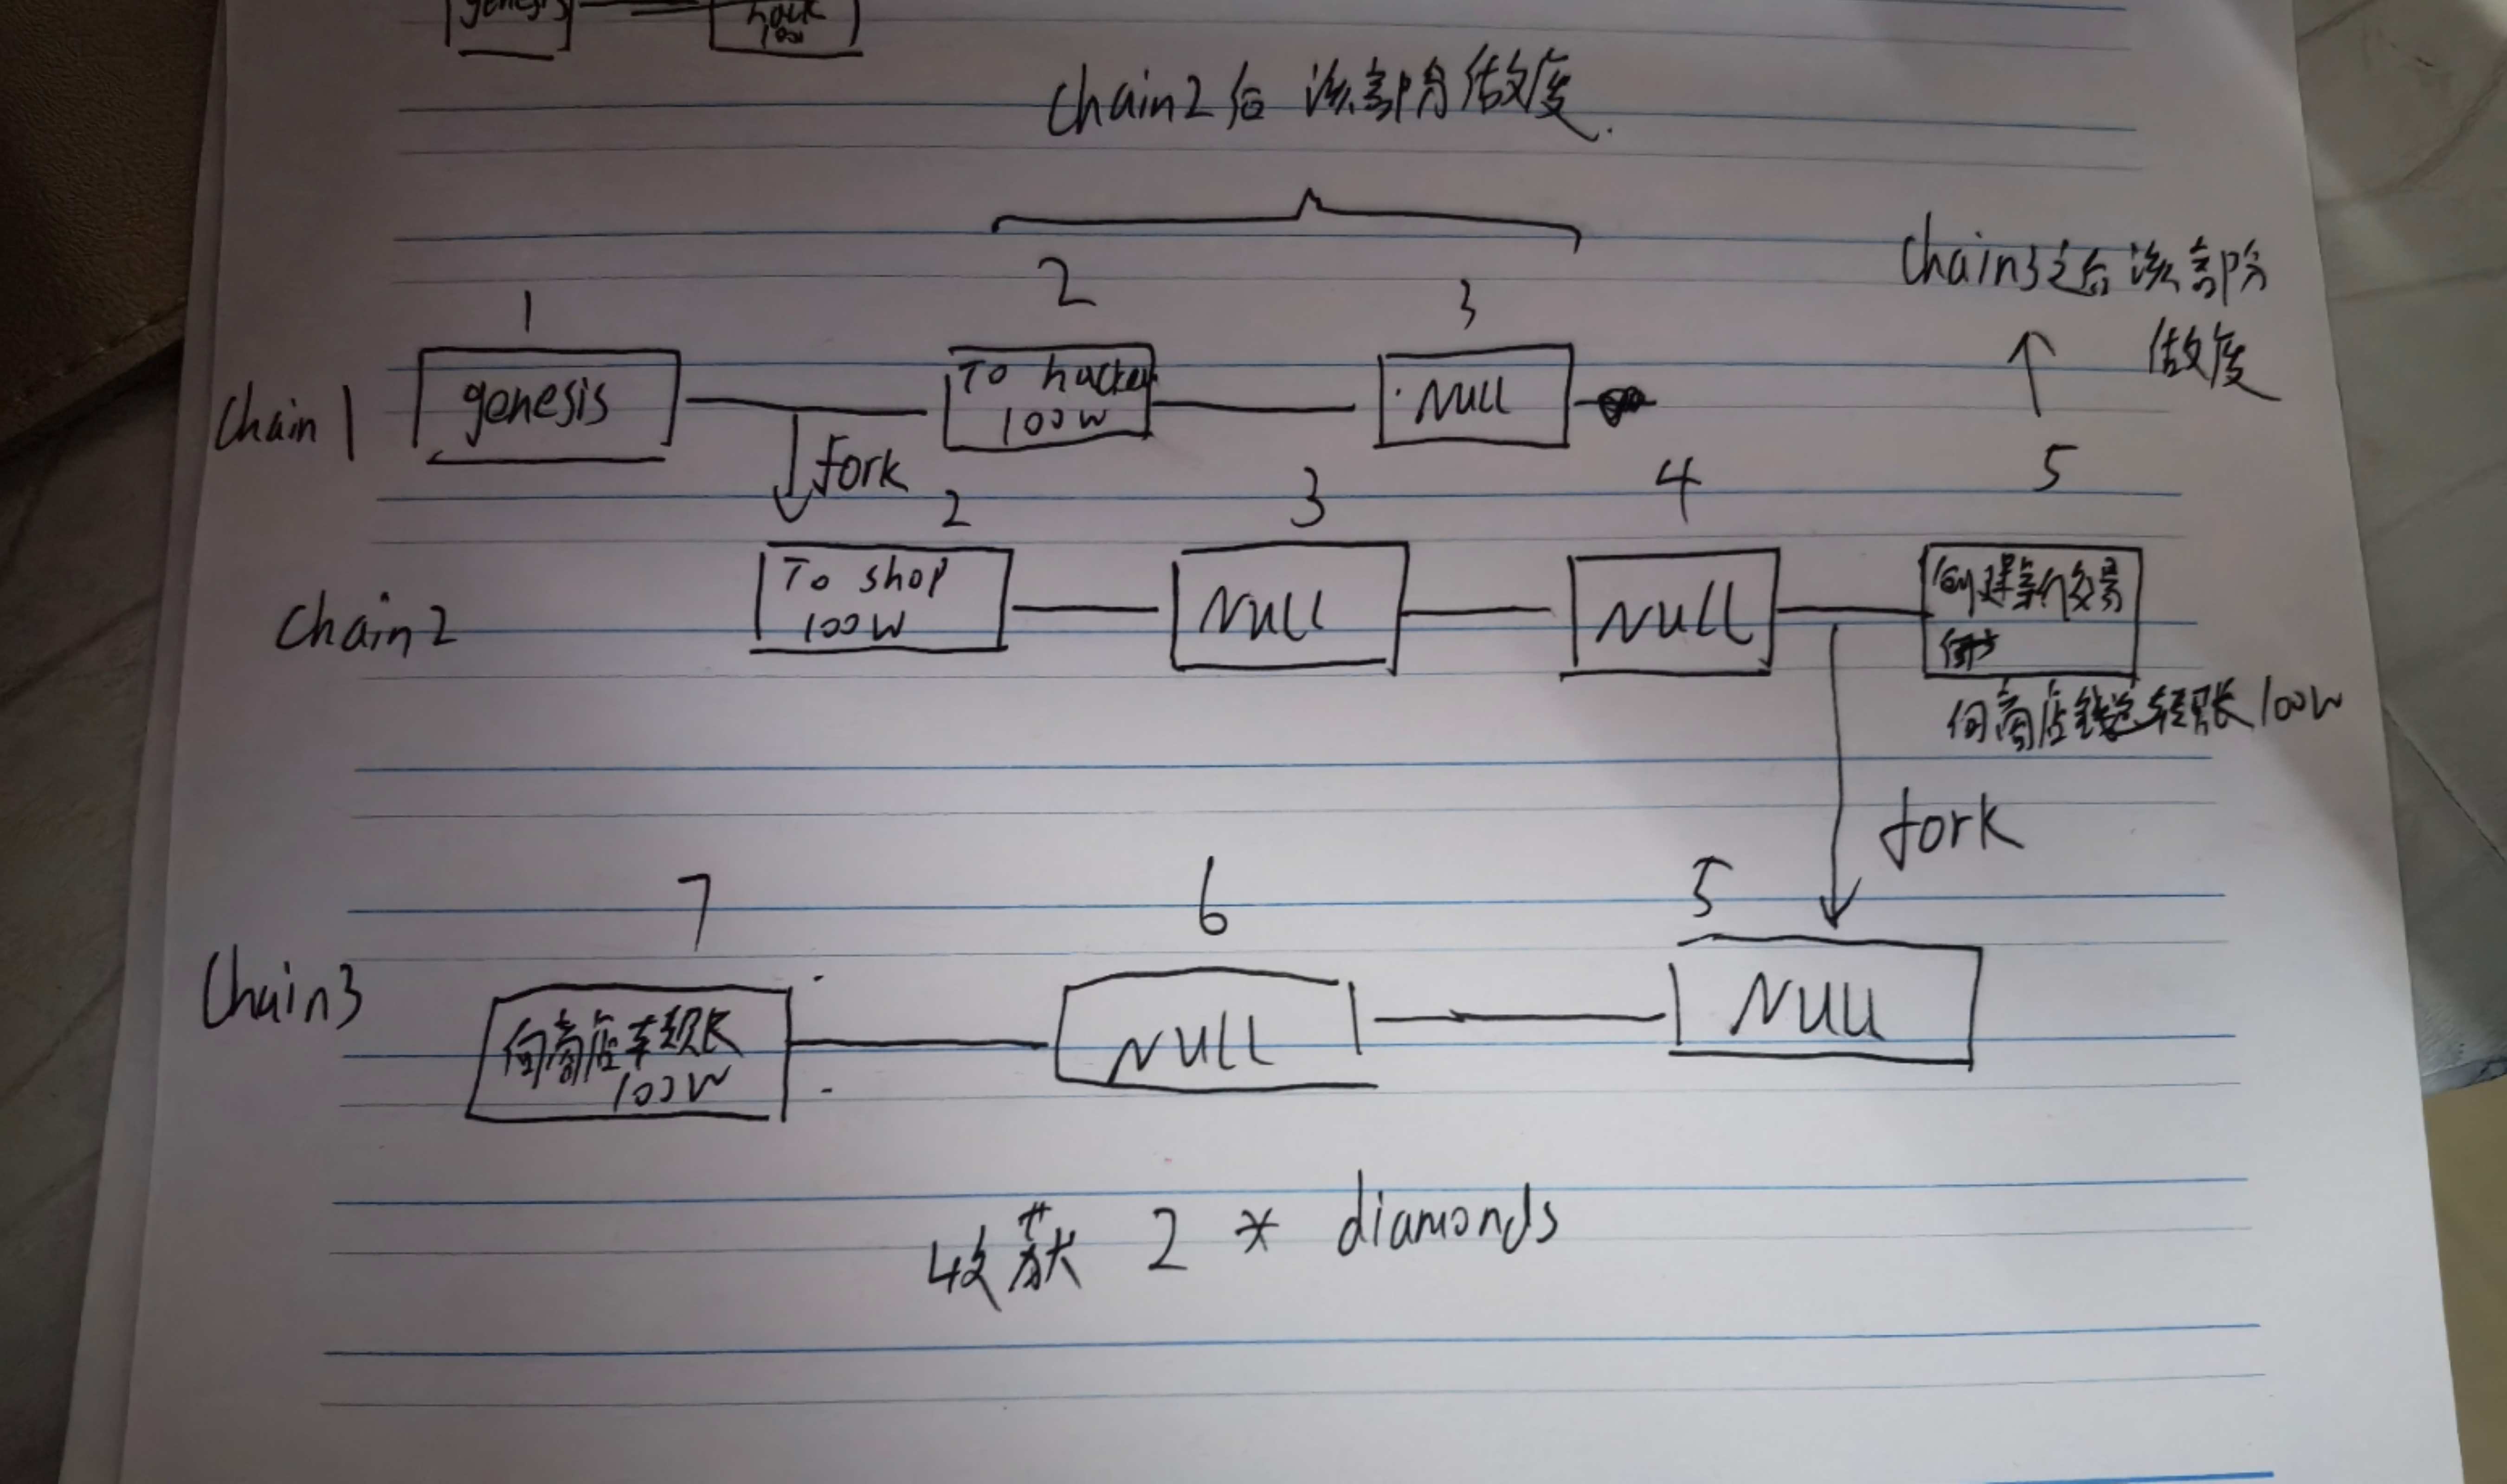 genesis
hack
100
chain2后 该部份做废.
chain3之后 该部份
做废
1
2
3
chain 1
genesis
To hacker
100W
NULL
fork
2
3
4
5
chain2
To shop
100W
NULL
NULL
创建新的交易
向商店钱包转账100W
fork
7
6
5
chain3
向商店转账
100W
NULL
NULL
收获 2 * diamonds